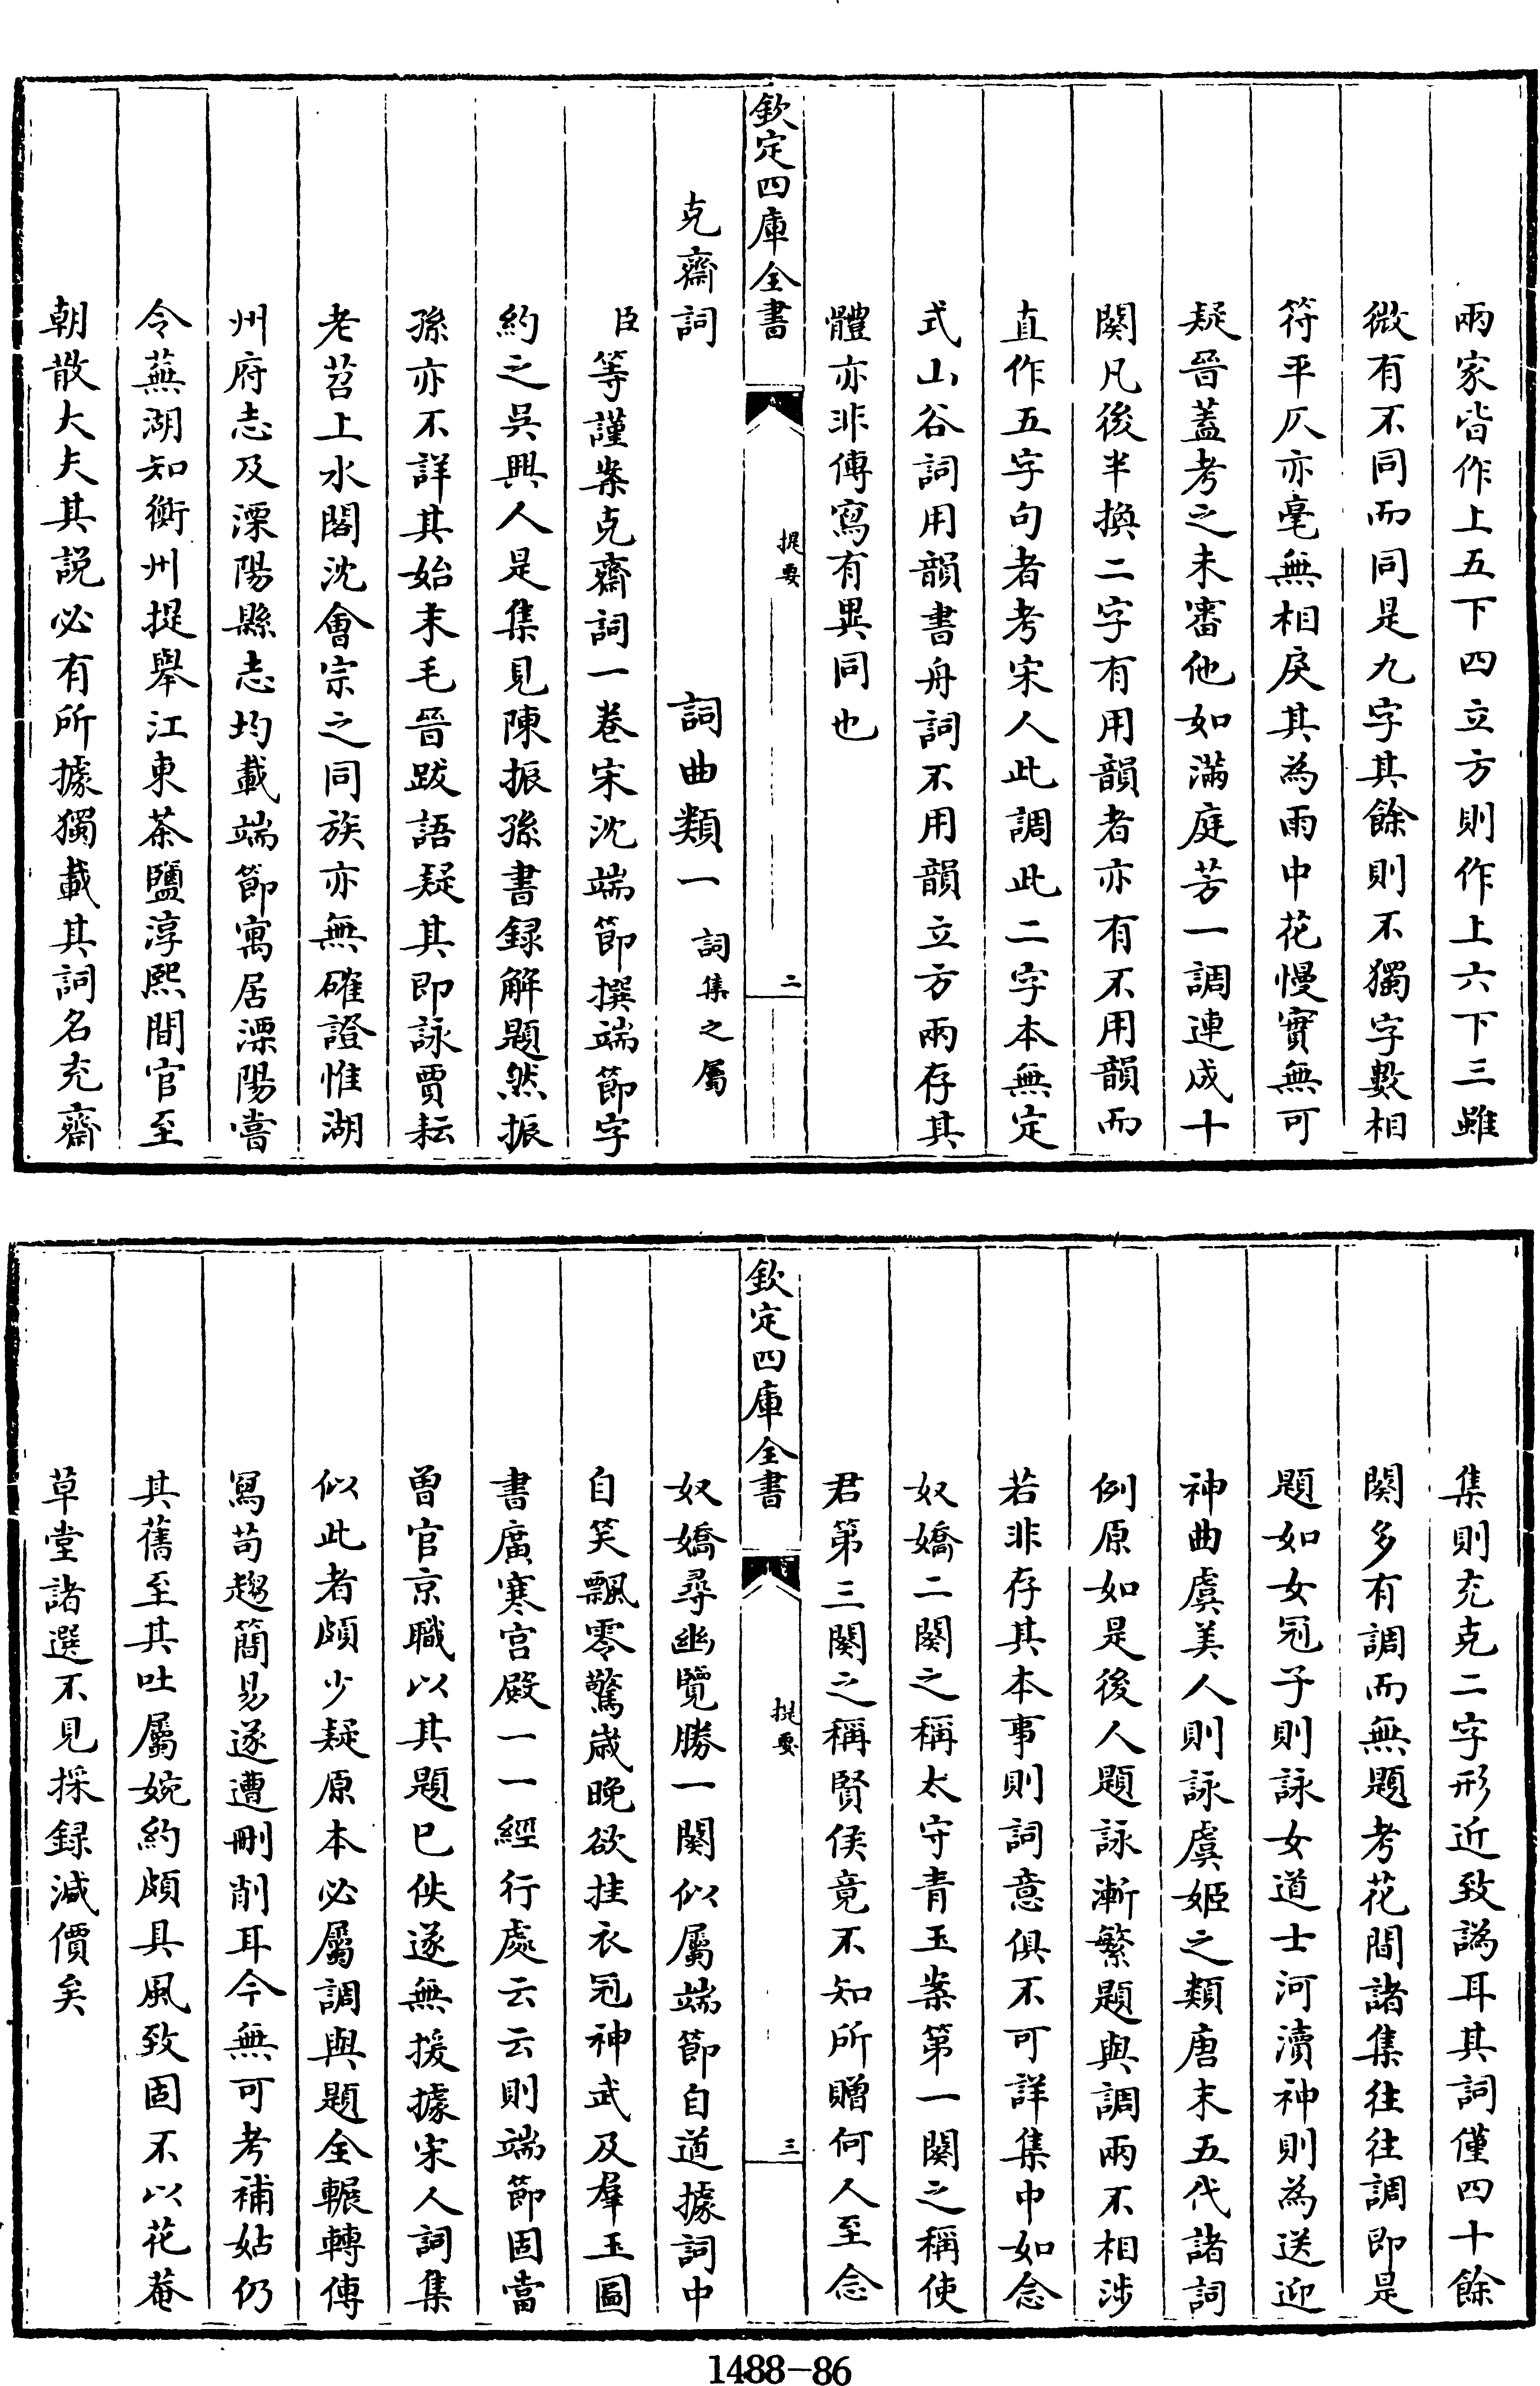 兩家皆作上五下四立方則作上六下三雖
微有不同而同是九字其餘則不獨字數相
符平仄亦毫無相戾其為雨中花慢實無可
疑晉蓋考之未審他如滿庭芳一調連成十
闋凡後半換二字有用韻者亦有不用韻而
直作五字句者考宋人此調此二字本無定
式山谷詞用韻書舟詞不用韻立方兩存其
體亦非傳寫有異同也
欽定四庫全書
提要
二
克齋詞
詞曲類一 詞集之屬
臣等謹案克齋詞一卷宋沈端節撰端節字
約之吳興人是集見陳振孫書録解題然振
孫亦不詳其始末毛晉跋語疑其即詠賈耘
老苕上水閣沈會宗之同族亦無確證惟湖
州府志及溧陽縣志均載端節寓居溧陽嘗
令蕪湖知衡州提舉江東茶鹽淳熙間官至
朝散大夫其説必有所據獨載其詞名充齋
集則充克二字形近致譌耳其詞僅四十餘
闋多有調而無題考花間諸集往往調即是
題如女冠子則詠女道士河瀆神則為送迎
神曲虞美人則詠虞姬之類唐末五代諸詞
例原如是後人題詠漸繁題與調兩不相涉
若非存其本事則詞意俱不可詳集中如念
奴嬌二闋之稱太守青玉案第一闋之稱使
君第三闋之稱賢侯竟不知所贈何人至念
欽定四庫全書
提要
三
奴嬌尋幽覽勝一闋似屬端節自道據詞中
自笑飄零驚歲晚欲挂衣冠神武及羣玉圖
書廣寒宮殿一一經行處云云則端節固嘗
曾官京職以其題已佚遂無援據宋人詞集
似此者頗少疑原本必屬調與題全輾轉傳
寫苟趨簡易遂遭刪削耳今無可考補姑仍
其舊至其吐屬婉約頗具風致固不以花菴
草堂諸選不見採録減價矣
1488-86